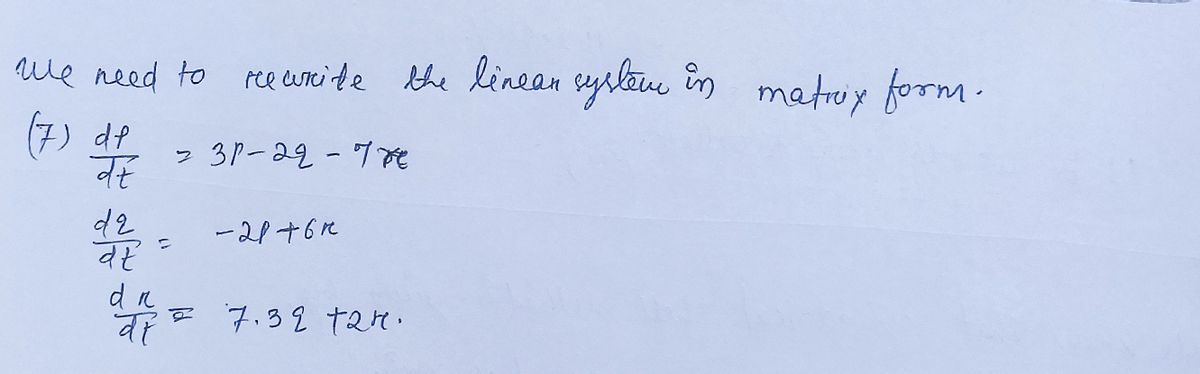 We need to rewrite the linear system in matrix form.
(7) dp/dt = 3p-2q-7r
dq/dt = -2p+6r
dr/dt = 7.3q+2r.